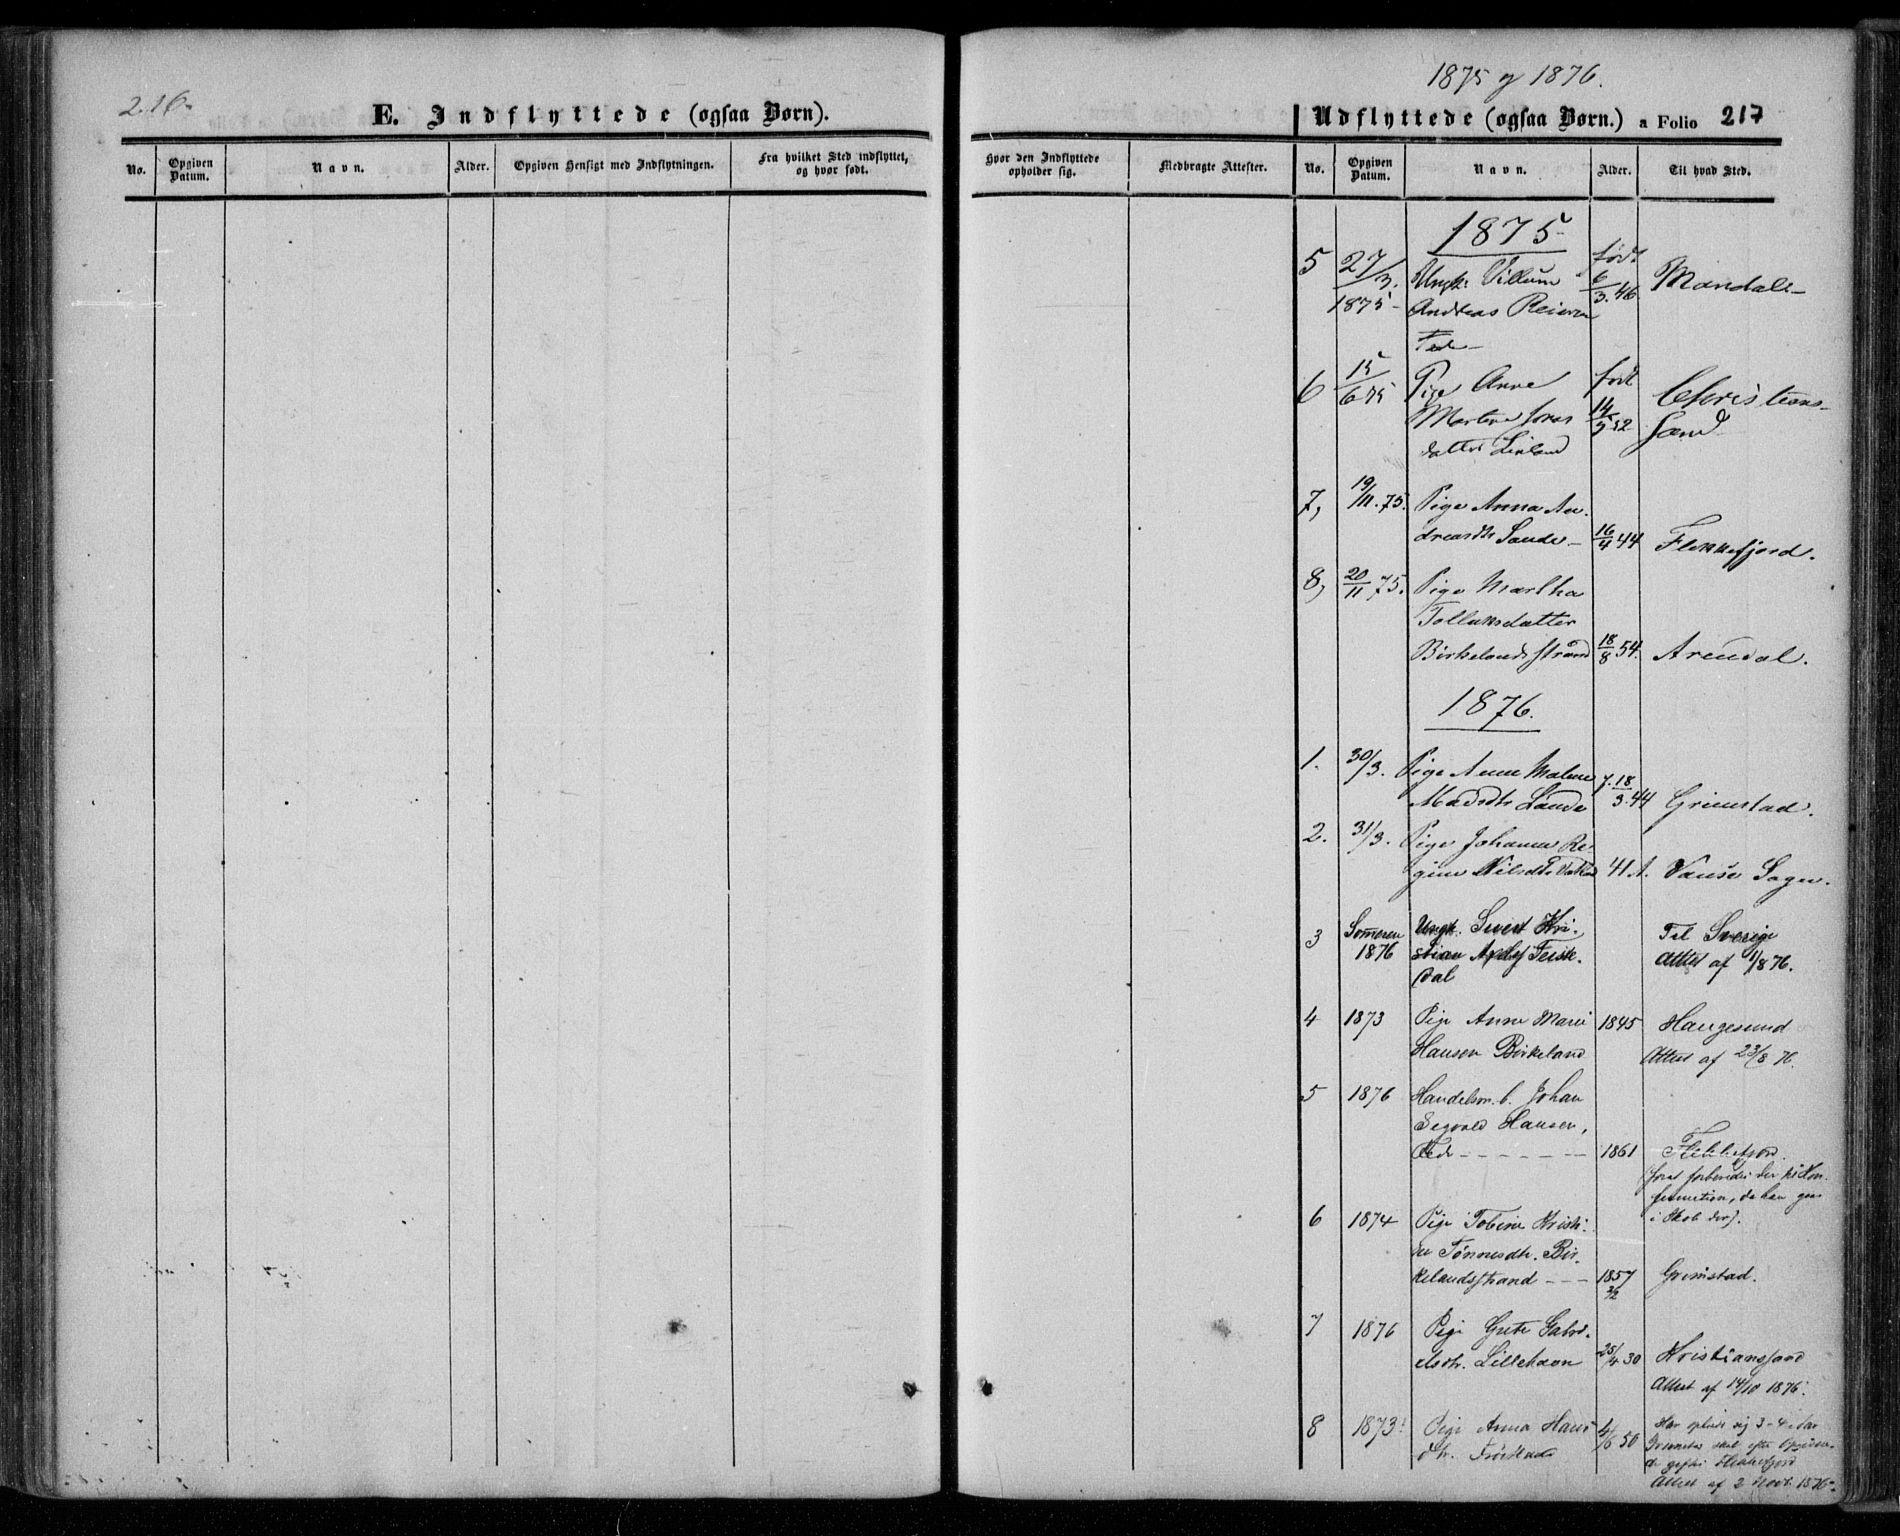 216.
E. Indflyttede (ogsaa Børn).
No.
Opgiven Datum.
Navn.
Alder.
Opgiven Hensigt med Indflytningen.
Fra hvilket Sted indflyttet, og hvor født.
1875 og 1876.
Udflyttede (ogsaa Børn.) a Folio 217
Hvor den Indflyttede opholder sig.
Medbragte Attester.
No.
Opgiven Datum.
Navn.
Alder.
Til hvad Sted.
1875
5 27/3. Ungk. Villum født 6/3.46 Mandal
1875 Andreas Reiersen
Fede
6 15/6 75 Pige Anne født 14/5 52 Christians-
Martine
datter sand
7, 19/11.75. Pige Anna An-
dreasdtr Sande 16/4 44 Flekkefjord.
8, 20/11 75. Pige Martha
Tollaksdatter
Birkelandsstrand 18/8 54. Arendal.
1876.
1. 30/3. Pige Anne Malene
Madsdtr Lande f. 18/3.44 Grimstad.
2. 31/3. Pige Johanne Re-
gine Nilsdtr 41 A. Vanse Sogn.
3 Sommeren Ungk. Sivert Kri- Til Sverige
1876 stian Feise- Attest af 1/8 76.
dal
4 1873 Pige Anne Marie 1845 Haugesund
Hansen Birkeland Attest af 23/8 76.
5 1876 Handelsm. b. Johan
Sigvald Hansen,
Fede 1861 Flekkefjord.
(for at forberedes der til Kon-
firmation, da han gaar
i Skole der).
6 1874 Pige Tobine Kristi-
ne Tønnesdtr. Bir-
kelandsstrand 1857 Grimstad.
7 1876 Pige Grete Gabri-
elsdtr. Lillehavn 25/4 30 Kristianssand
Attest af 14/10 1876.
8 1873 Pige Anna Hans- 4/6 50 Har opholdt sig 3-4 Aar
dtr.
Attest af 2 Novb. 1876.